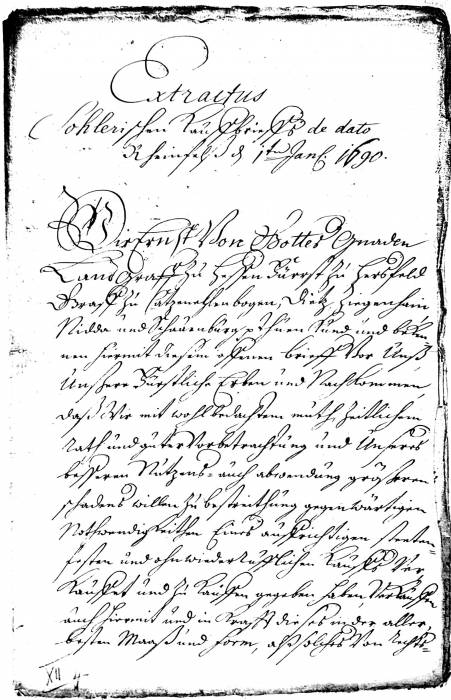 Extractus
Kohlerischen Kauffbrieffs de dato
Rheinfels d 1t Jan. 1690.
Wir Ernst Von Gottes Gnaden
Land Graff zu Hessen Fürst zu Hersfeld
Graff zu Catzenelnbogen, Dietz Ziegenhain
Nidda und Schauenburg p Thuen Kund und beken
nen hiermit diesem offenen brieff Vor Unß
Unßere Fürstliche Erben und Nachkommen,
daß Wir mit wohlbedachtem muth, Zeitlichem
Rath und guter Vorbetrachtung und Unseres
besseren Nutzens auch abwendung größeren
schadens willen zu bestreithung gegenwärtigen
Nothwendigkeithen Eines auffrichtigen steeten
festen und ohnwiederrufflichen Kauffs Ver
Kauffet und zu Kauffen gegeben haben, Verkauffen
auch hiermit und in Krafft dieses in der aller
besten Maaß und Form, alß solches Von Rechts
XII